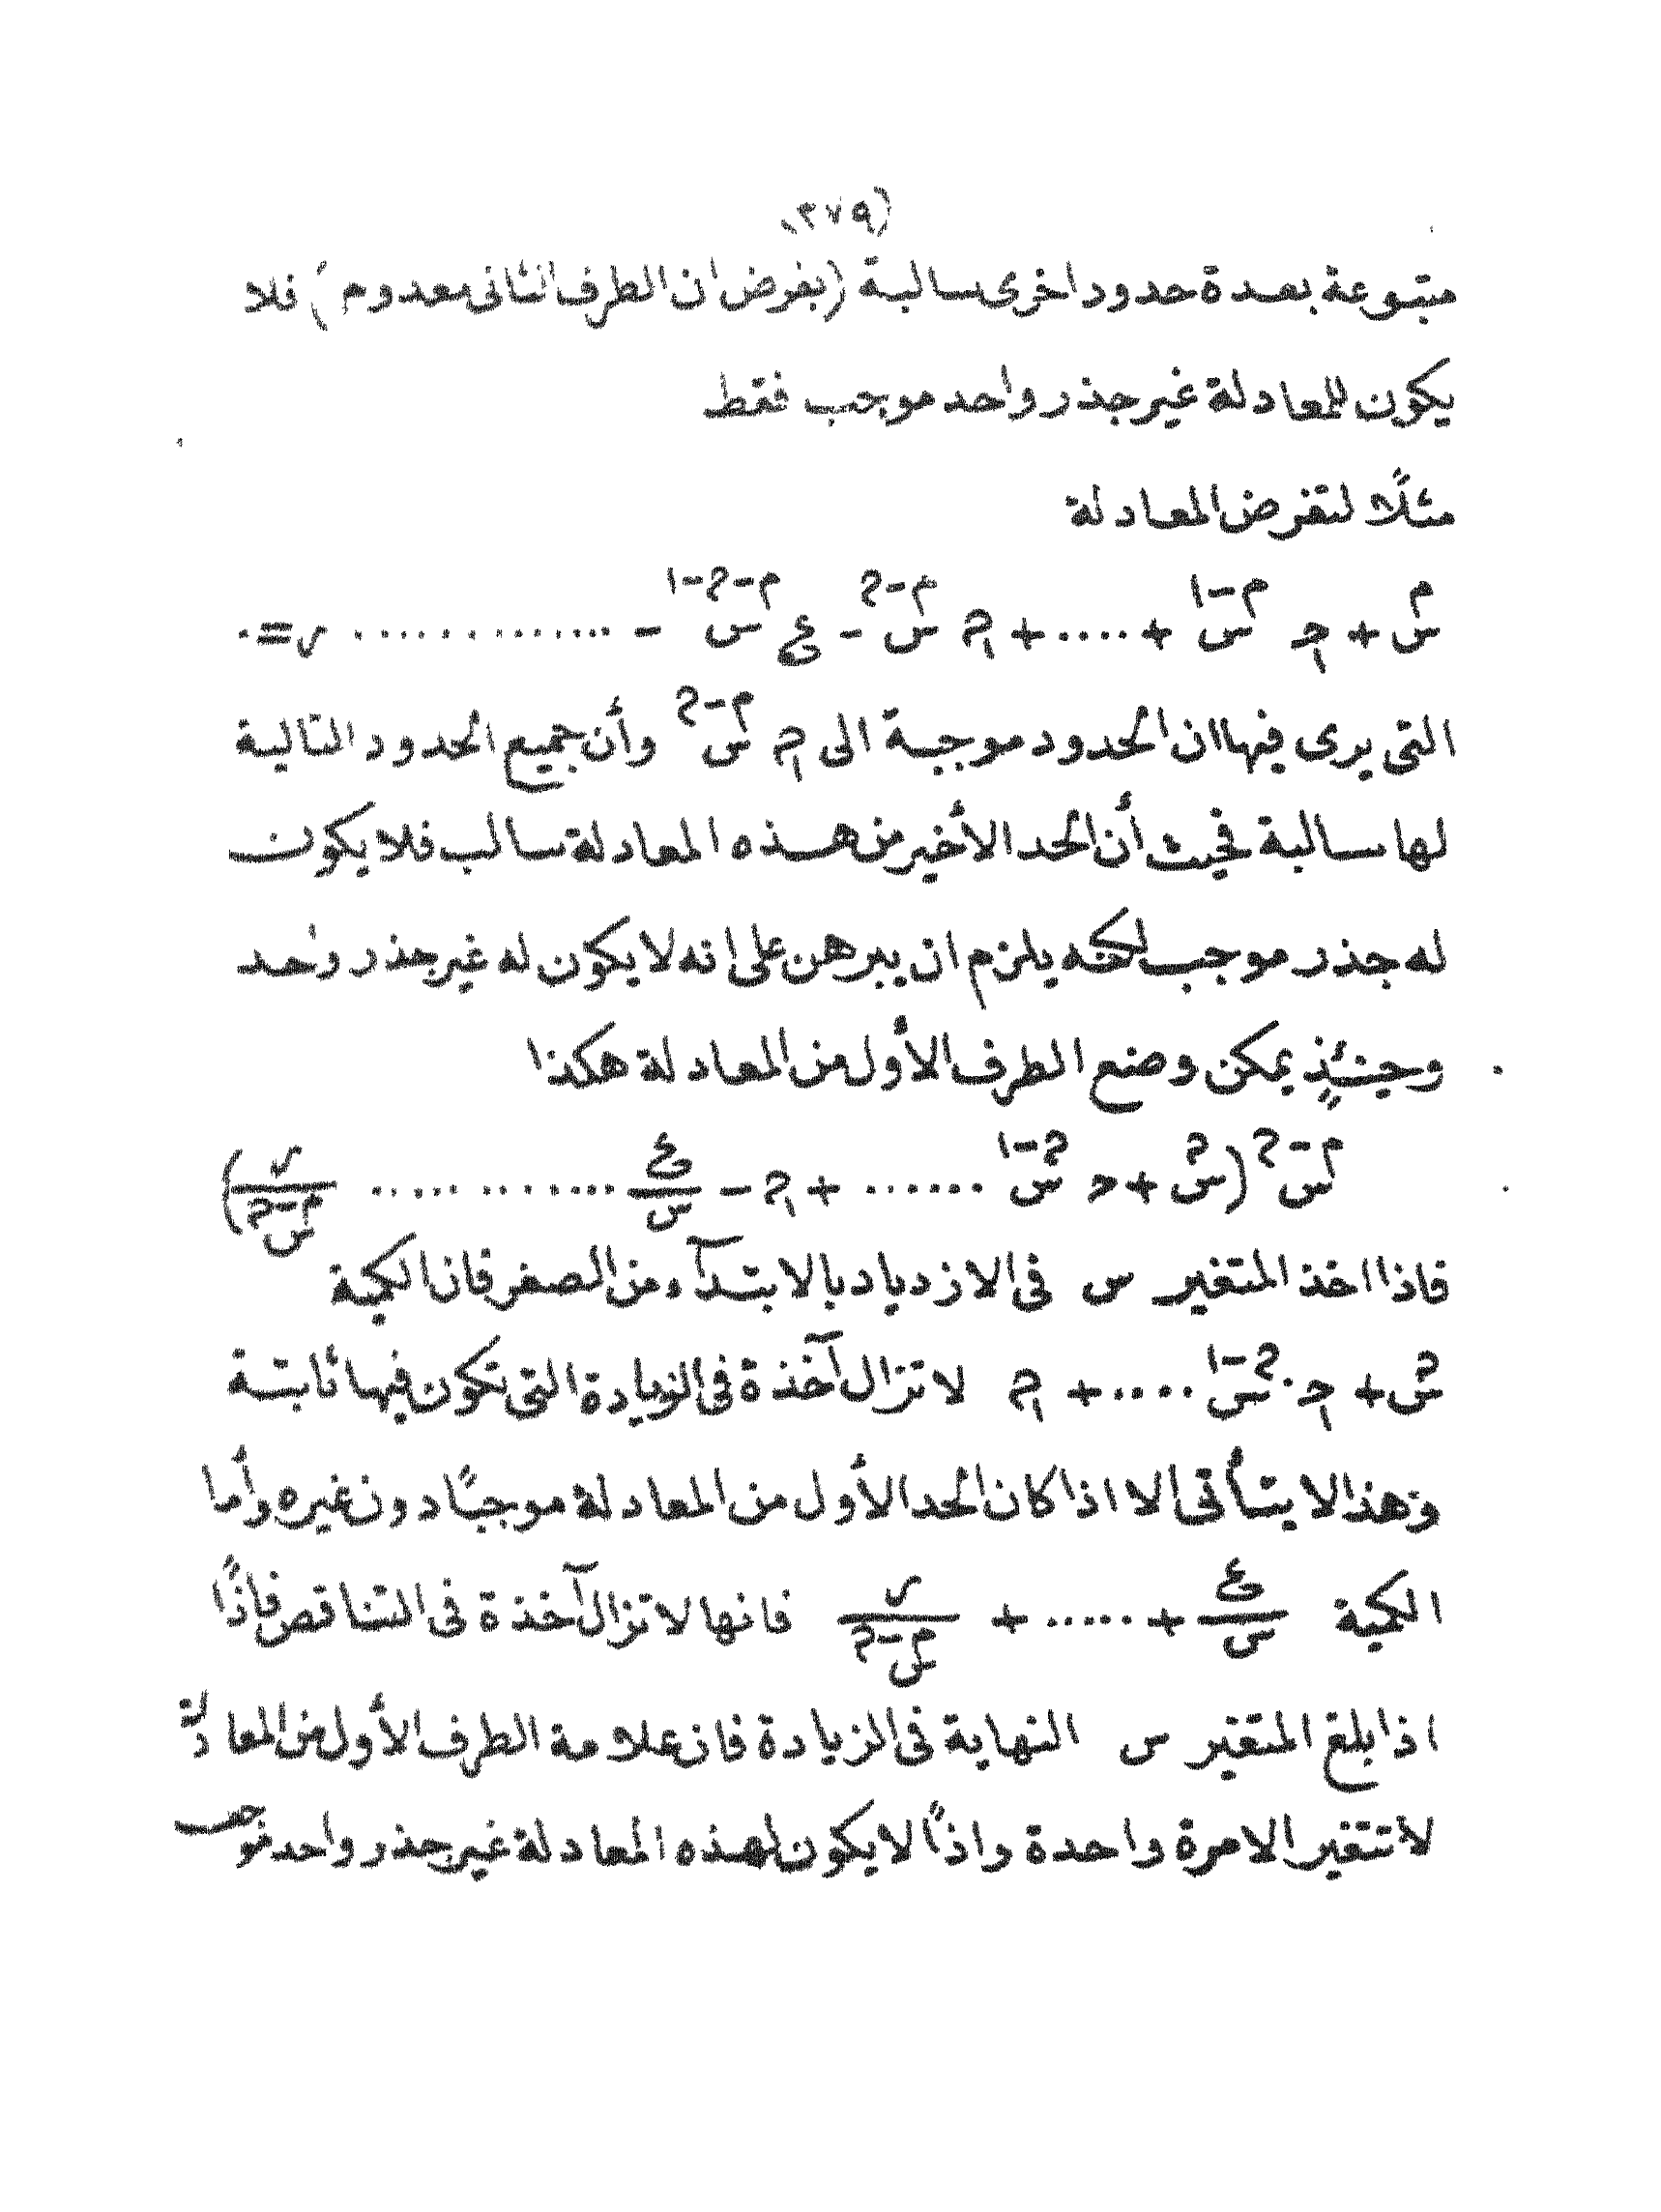 (٣٧٩)
متبوعة بعدة حدود اخرى سالبة (بفرض ان الطرف الثانى معدوم) فلا
يكون للمعادلة غير جذر واحد موجب فقط
مثلًا لنفرض المعادلة
س^م + ح س^(م-١) + .... + م س^(م-ح) - ع س^(م-ح-١) - .............. ر = ٠
التى يرى فيها ان الحدود موجبة الى م س^(م-ح) وأن جميع الحدود التالية
لها سالبة فحيث أن الحد الأخير من هذه المعادلة سالب فلا يكون
له جذر موجب لكنه يلزم ان يبرهن على انه لا يكون له غير جذر واحد
وحينئذٍ يمكن وضع الطرف الأول من المعادلة هكذا
س^(م-ح) (س^ح + ح س^(ح-١) ...... + م - ع/س ............ ر/س^(م-ح))
فاذا اخذ المتغير س فى الازدياد بالابتدآء من الصفر فان الكمية
س^ح + ح س^(ح-١) .... + م لا تزال آخذة فى الزيادة التى تكون فيها ثابتة
وهذا لا يتأتى الا اذا كان الحد الأول من المعادلة موجبًا دون غيره وأما
الكمية ع/س + ..... + ر/س^(م-ح) فانها لا تزال آخذة فى التناقص فاذًا
اذا بلغ المتغير س النهاية فى الزيادة فان علامة الطرف الأول من المعادلة
لا تتغير الا مرة واحدة واذًا لا يكون لهذه المعادلة غير جذر واحد موجب